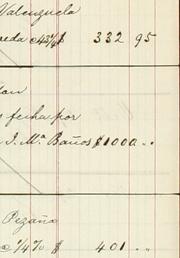 Valenzuela
eda a 43¼ $ 332 95
fecha por
J. Mª Baños $ 1000 ..
Pezaña
a ¼ % $ 401 ..